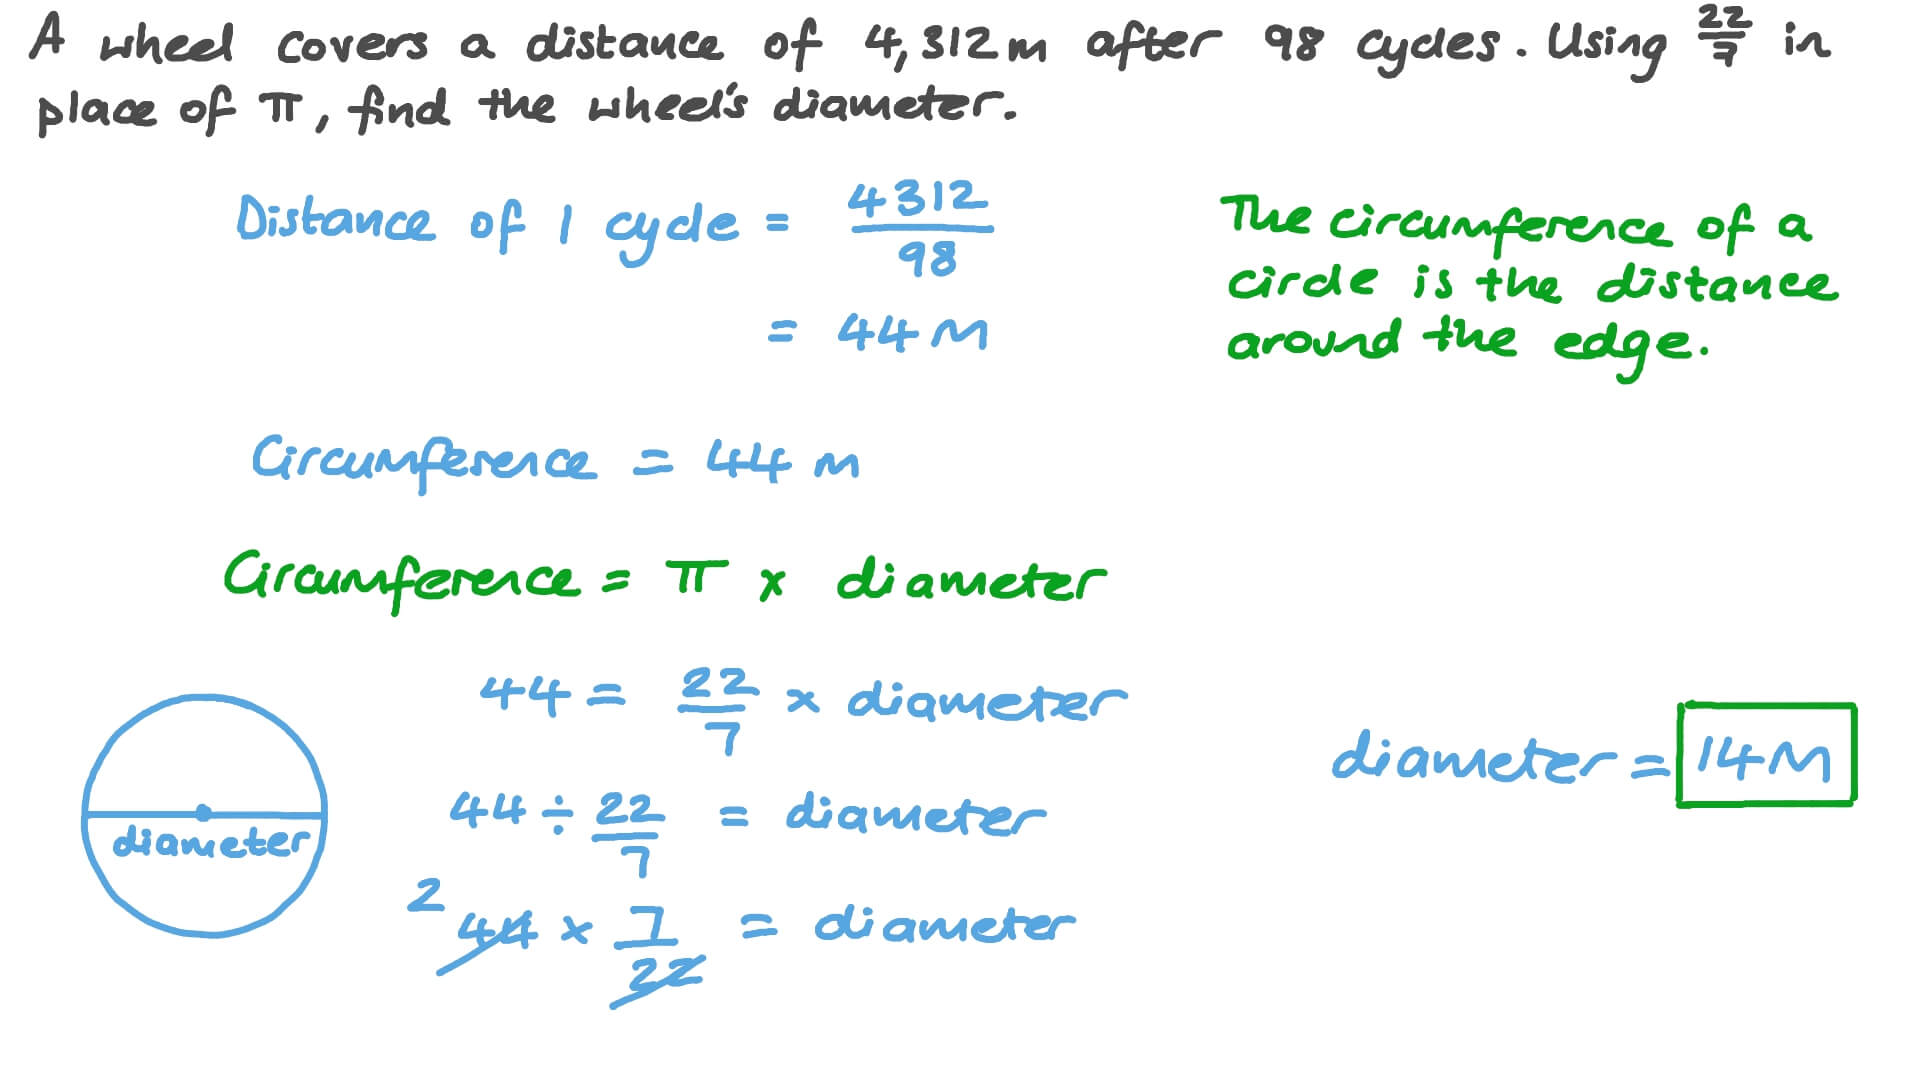 A wheel covers a distance of 4,312m after 98 cycles. Using 22/7 in
place of π, find the wheel's diameter.
Distance of 1 cycle = 4312/98
= 44m
The circumference of a
circle is the distance
around the edge.
Circumference = 44 m
Circumference = π x diameter
44 = 22/7 x diameter
44 ÷ 22/7 = diameter
2 44 x 7/22 = diameter
diameter
diameter = 14m